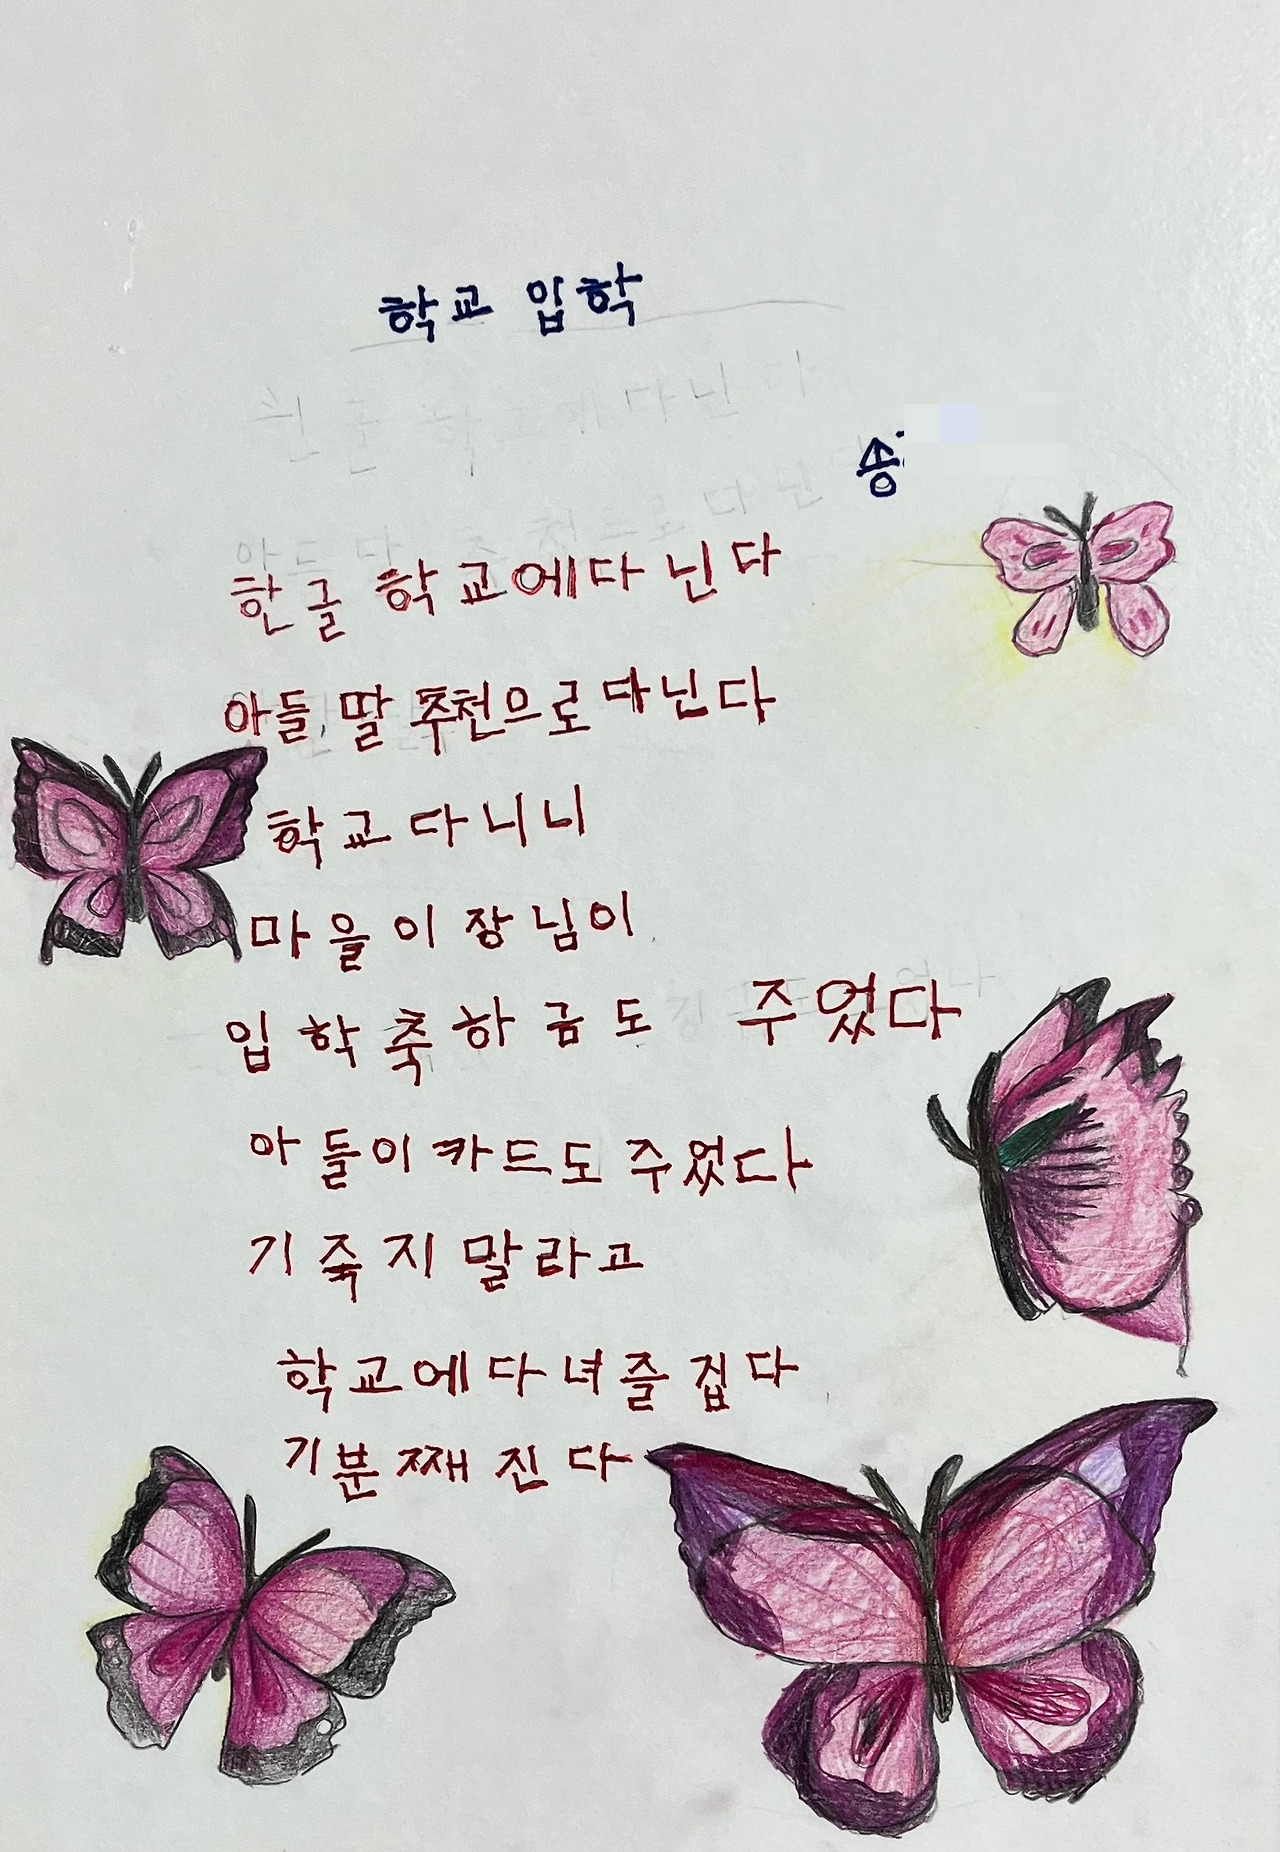 학교 입학
승
한글 학교에다닌다
아들, 딸 추천으로다닌다
학교다니니
마을이장님이
입학축하금도 주었다
아들이카드도주었다
기죽지말라고
학교에다녀즐겁다
기분째진다